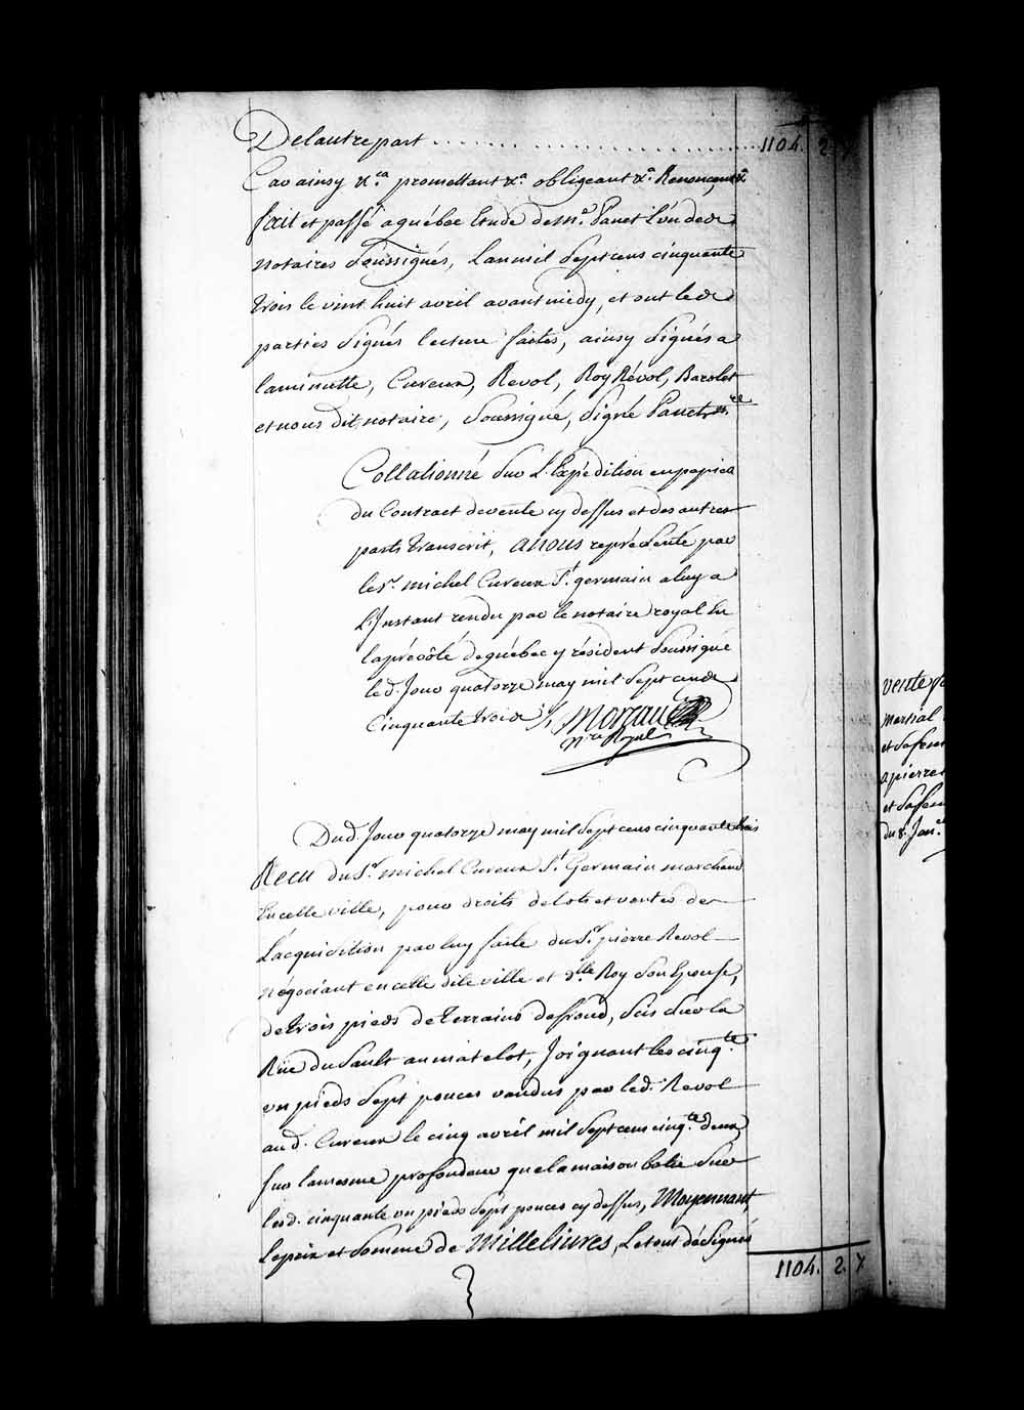 Delautre part .......................... 1104. 2. 7
Car ainsy &.ca promettant &.a obligeant &.a Renonçant &.a
fait et passé a québec Etude de M.e Panet L'un de
notaires Soussignés, Lan mil Sept cens cinquante
trois le vint huit avril avant midy, et ont led
parties Signés lecture faites, ainsy Signés a
la minutte, Cureux, Revol, Roy Révol, Barolet
et nous dit notaire, Soussigné, Signé Panet n.re
Collationné Sur L'Expédition en papier
du Contract de vente cy dessus et des autres
parts transcrit, a nous représenté par
le S.r michel Cureux S.t germain a luy a
L'Instant rendu par le notaire royal En
la prévôté de québec y résident Soussigné
led. Jour quatorze may mil Sept cens
Cinquante trois /. Moreau
n.re Royal
Dud. Jour quatorze may mil Sept cens cinquante trois
Recu du S.r michel Cureux S.t Germain marchand
En cette ville, pour droits de lots et ventes de
L'acquisition par luy faite du S.r pierre Revol
négociant en cette dite ville et d.lle Roy Son Epouse,
de trois pieds de terrains de frond, Sis Sur la
Rüe du Sault au matelot, Joignant les cinq.te
un pieds Sept pouces vendus par led. Revol
aud. Cureux le cinq avril mil Sept cens cinq.te deux
Sur la mesme profondeur que la maison batie Sur
lesd. cinquante un pieds Sept pouces cy dessus, Moyennant
le prix et Somme de Mille livres, Le tout désigné
1104. 2. 7
vente p
Martial
et Safem
a pierre
et Safem
du 8. Jan.er